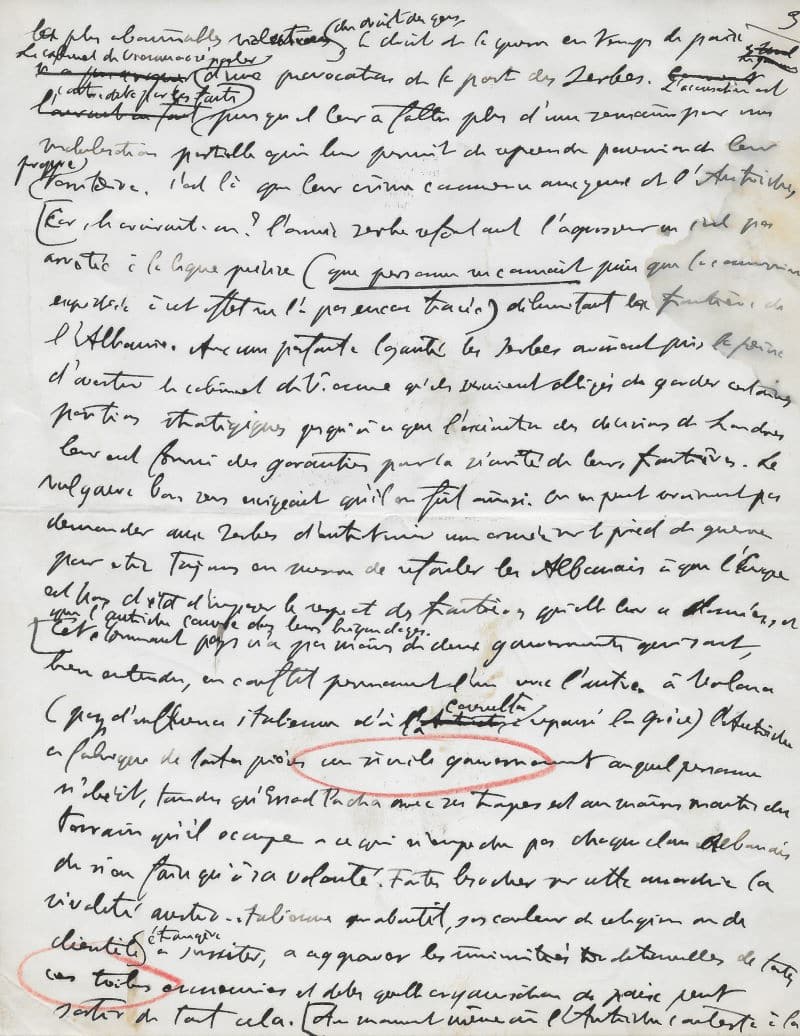 3
les plus abominables violations du droit des gens, le droit de la guerre en temps de paix
Le cabinet de Vienne ose parler d'une provocation de la part des Serbes. L'accusation est
contredite par les faits puisqu'il leur a fallu plus d'une semaine pour une
mobilisation partielle qui leur permit de reprendre possession de leur
propre territoire. C'est là que leur crime commence aux yeux de l'Autriche,
Car, le croirait-on? l'armée serbe refoulant l'agresseur ne s'est pas
arrêtée à la ligne précise (que personne ne connait puisque la commission
expédiée à cet effet ne l'a pas encore tracée) délimitant les frontières de
l'Albanie. Avec une parfaite loyauté les Serbes avaient pris la peine
d'avertir le cabinet de Vienne qu'ils seraient obligés de garder certaines
positions stratégiques jusqu'à ce que l'exécution des décisions de Londres
leur eut fourni des garanties pour la sûreté de leurs frontières. Le
vulgaire bon sens exigeait qu'il en fût ainsi. On ne peut vraiment pas
demander aux Serbes d'entretenir une armée sur le pied de guerre
pour être toujours en mesure de refouler les Albanais à que l'Europe
est hors d'état d'imposer le respect des frontières qu'elle leur a données, et
que l'Autriche couvre dans leurs brigandages.
Cet étonnant pays n'a pas moins de deux gouvernements qui sont,
bien entendu, en conflit permanent l'un avec l'autre. à Valona
(pays d'influence italienne d'où la Consulta a repoussé la Grèce) l'Autriche
a fabriqué de toutes pièces un simili gouvernement auquel personne
n'obéit, tandis qu'Essad Pacha avec ses troupes est au moins maitre du
terrain qu'il occupe ce qui n'empêche pas chaque clan Albanais
de n'en faire qu'à sa volonté. Faites brocher sur cette anarchie la
rivalité austro-italienne qui aboutit, sous couleur de religion ou de
clientèle étrangère à susciter, à aggraver les inimitiés traditionnelles de toutes
ces tribus ennemies et dites quelle organisation de paix peut
sortir de tout cela. Au moment même où l'Autriche conteste à la